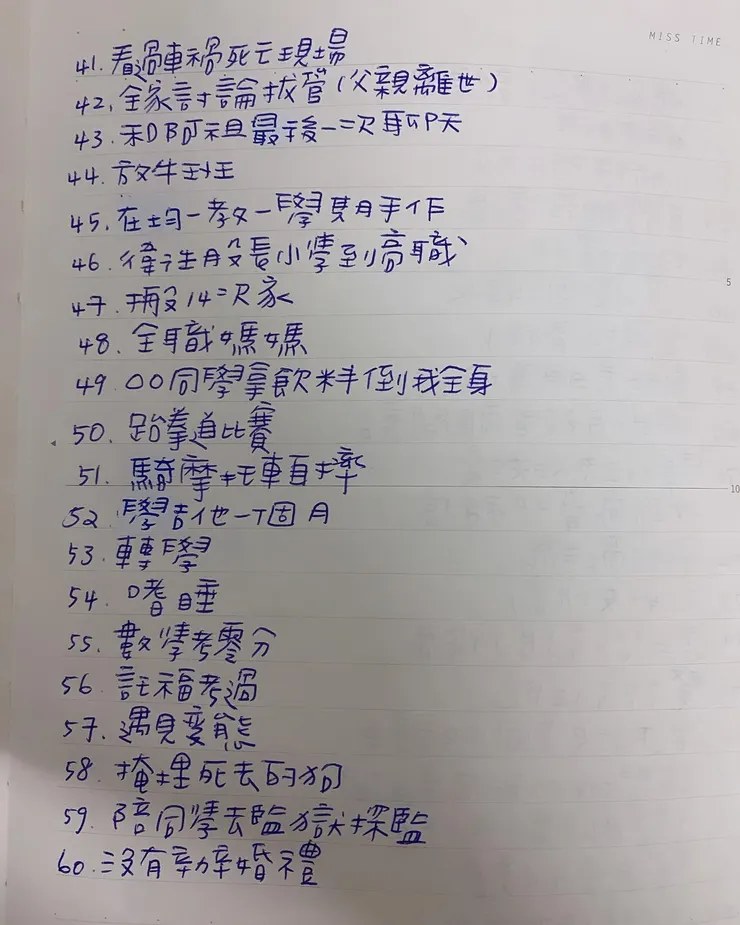 MISS TIME
41. 看過車禍死亡現場
42. 全家討論拔管(父親離世)
43. 和DB阿祖最後一次聊P天
44. 放牛班
45. 在均一教一學期手作
46. 衛生股長小學到高職
47. 搬14次家
48. 全職媽媽
49. OO同學拿飲料倒我全身
50. 跆拳道比賽
51. 騎摩托車自摔
52. 學吉他一個月
53. 轉學
54. 嗜睡
55. 數學考零分
56. 託福考過
57. 遇見變態
58. 掩埋死去的狗
59. 陪同學去監獄探監
60. 沒有辦婚禮
5
10